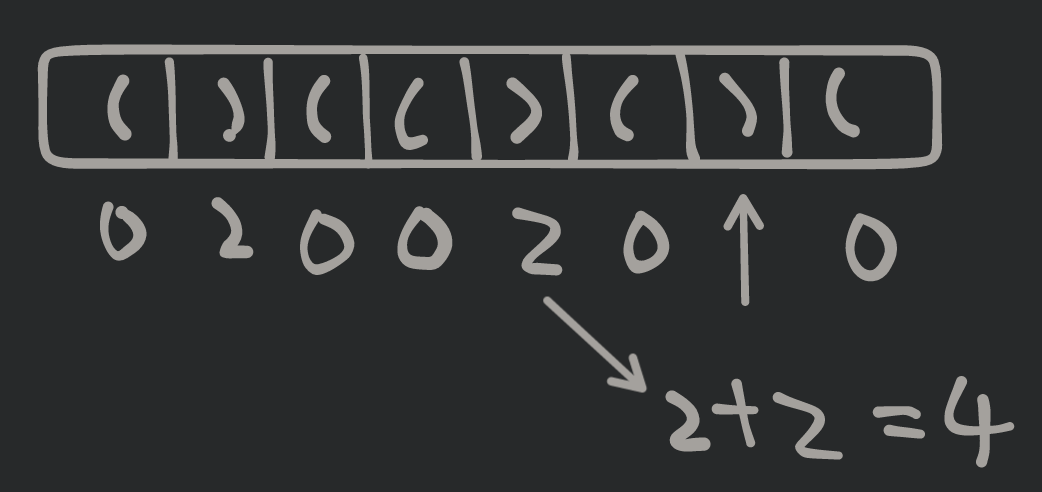 ( ) ( ( ) ( ) (
0 2 0 0 2 0 ↑ 0
2+2=4